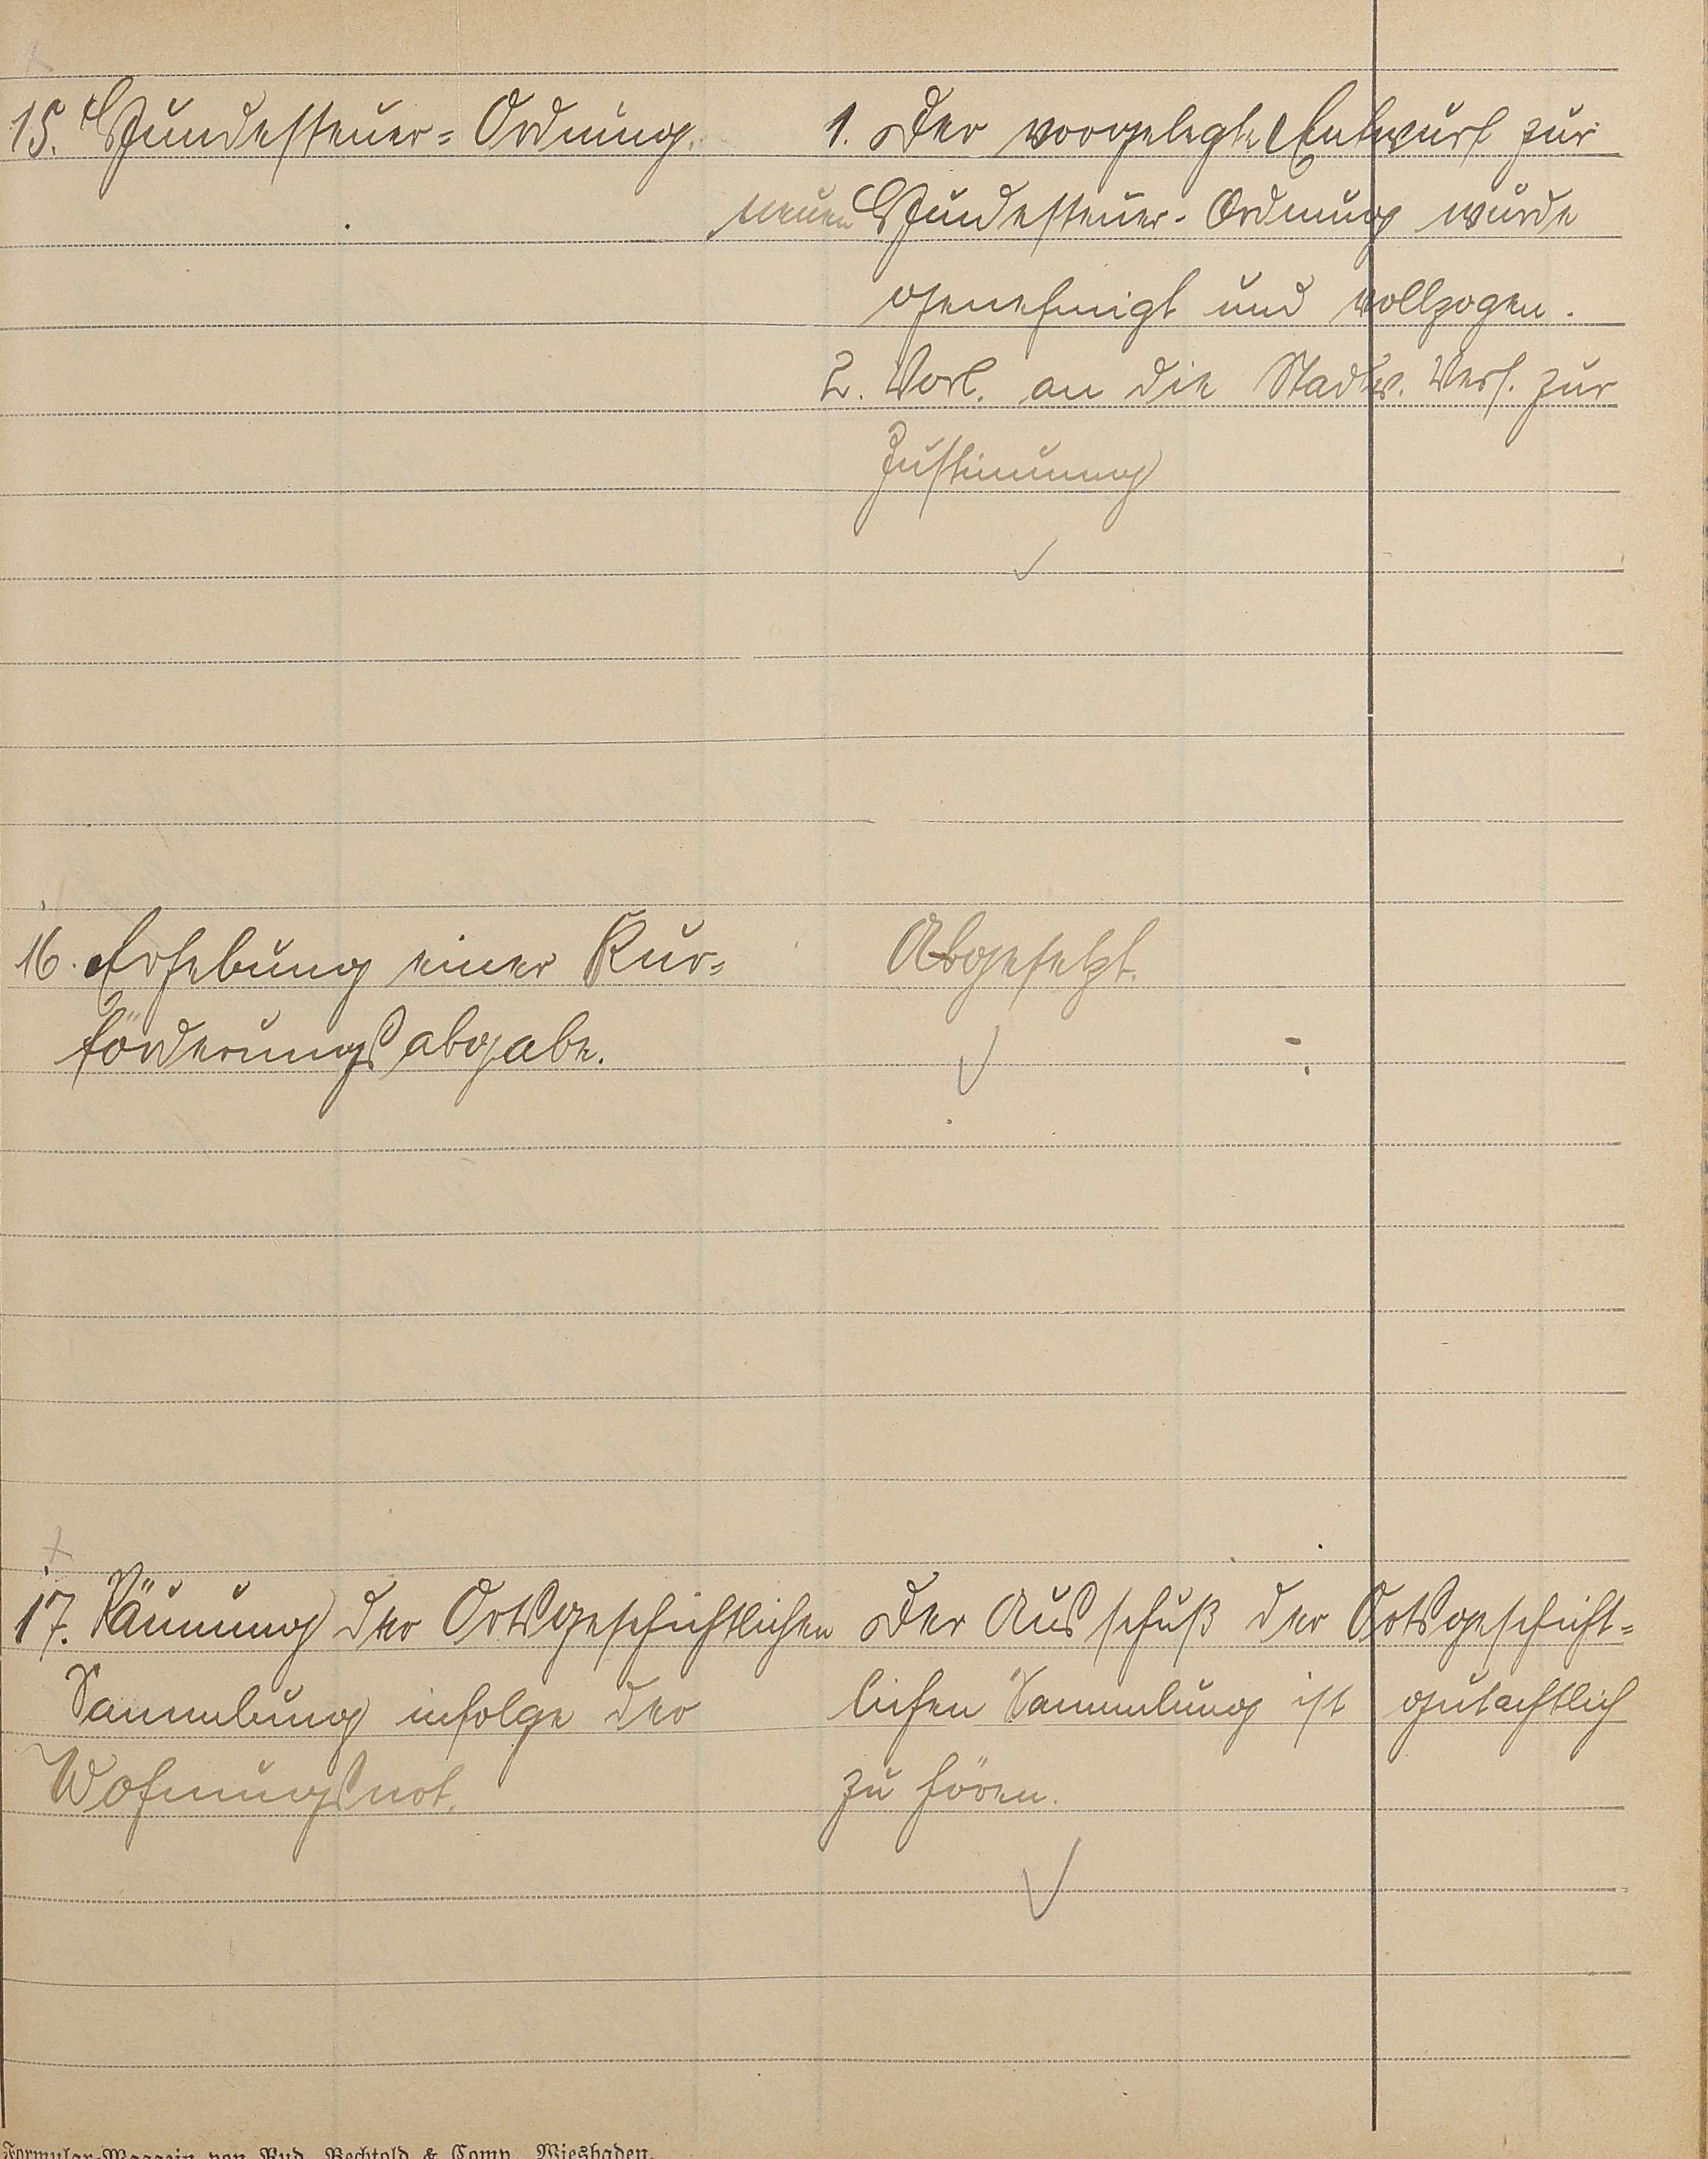 15. Hundesteuer-Ordnung.
1. Der vorgelegte Entwurf zur
neuen Hundesteuer-Ordnung wurde
genehmigt und vollzogen.
2. Vorl. an die Stadtv. Vers. zur
Zustimmung
16. Erhebung einer Kur-
förderungsabgabe.
Abgesetzt.
17. Räumung der Ortsgeschichtlichen
Sammlung infolge der
Wohnungsnot.
Der Ausschuß der Ortsgeschicht-
lichen Sammlung ist gutachtlich
zu hören.
Formular-Magazin von Rud. Bechtold & Comp. Wiesbaden.